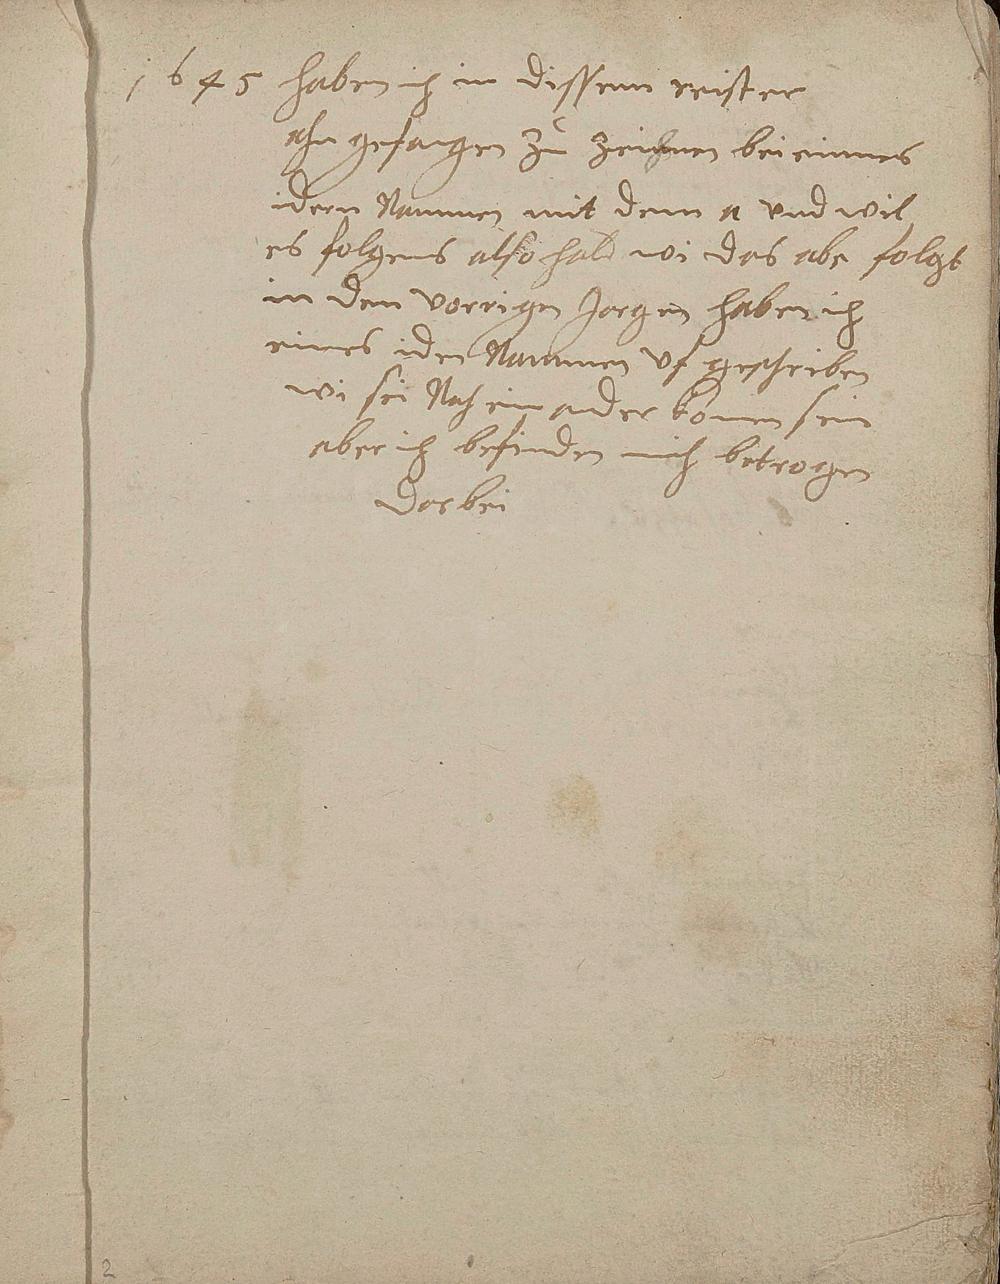 1645 haben ich in dissem reister
ahn gefangen zu zeichnen bei einnes
idern Nammen mit dem a vnd wil
es folgens also hald wi das abc folgt
in dem vorrigen Jorgen haben ich
eines iden Nammen vf geschriben
wi sei Nach ein ander komen sein
aber ich befinden mich betrogen
dar bei
2